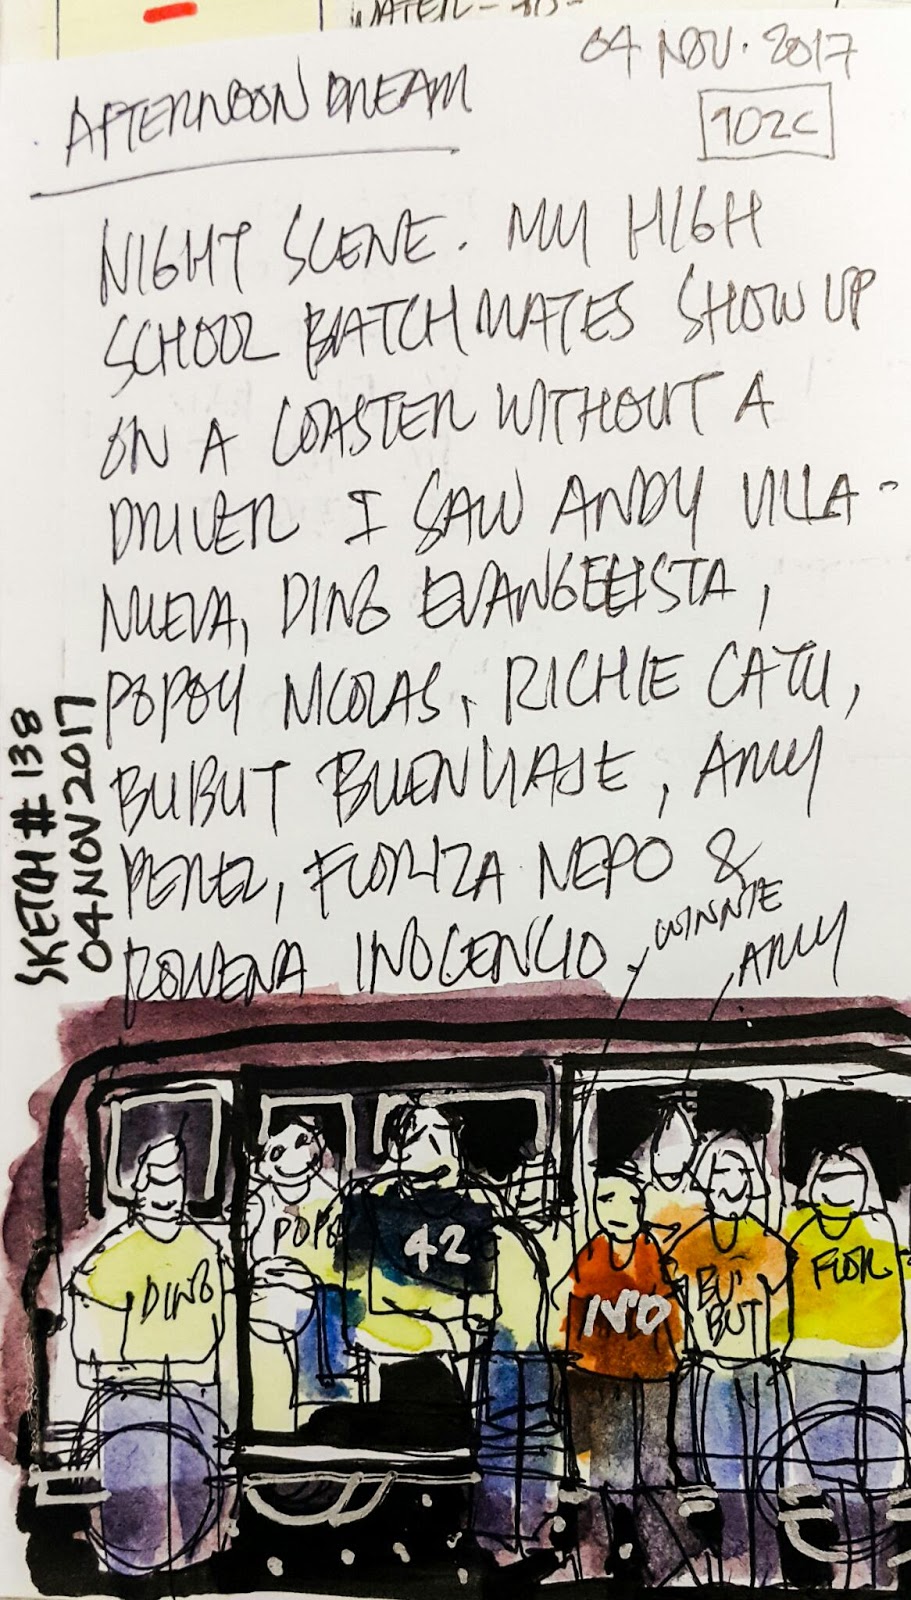 04 NOV. 2017
AFTERNOON DREAM
102C
NIGHT SCENE. MY HIGH
SCHOOL BATCHMATES SHOW UP
ON A COASTER WITHOUT A
DRIVER I SAW ANDY VILLA-
NUEVA, DING EVANGELISTA,
POPOY NICOLAS, RICHIE CATU,
BUBUT BUENVIAJE, AMY
PEREZ, FLORIZA NEPO &
ROWENA INOCENCIO
WINNIE
AMY
SKETCH # 138
04 NOV 2017
DING
42
BU
BUT
FLOR